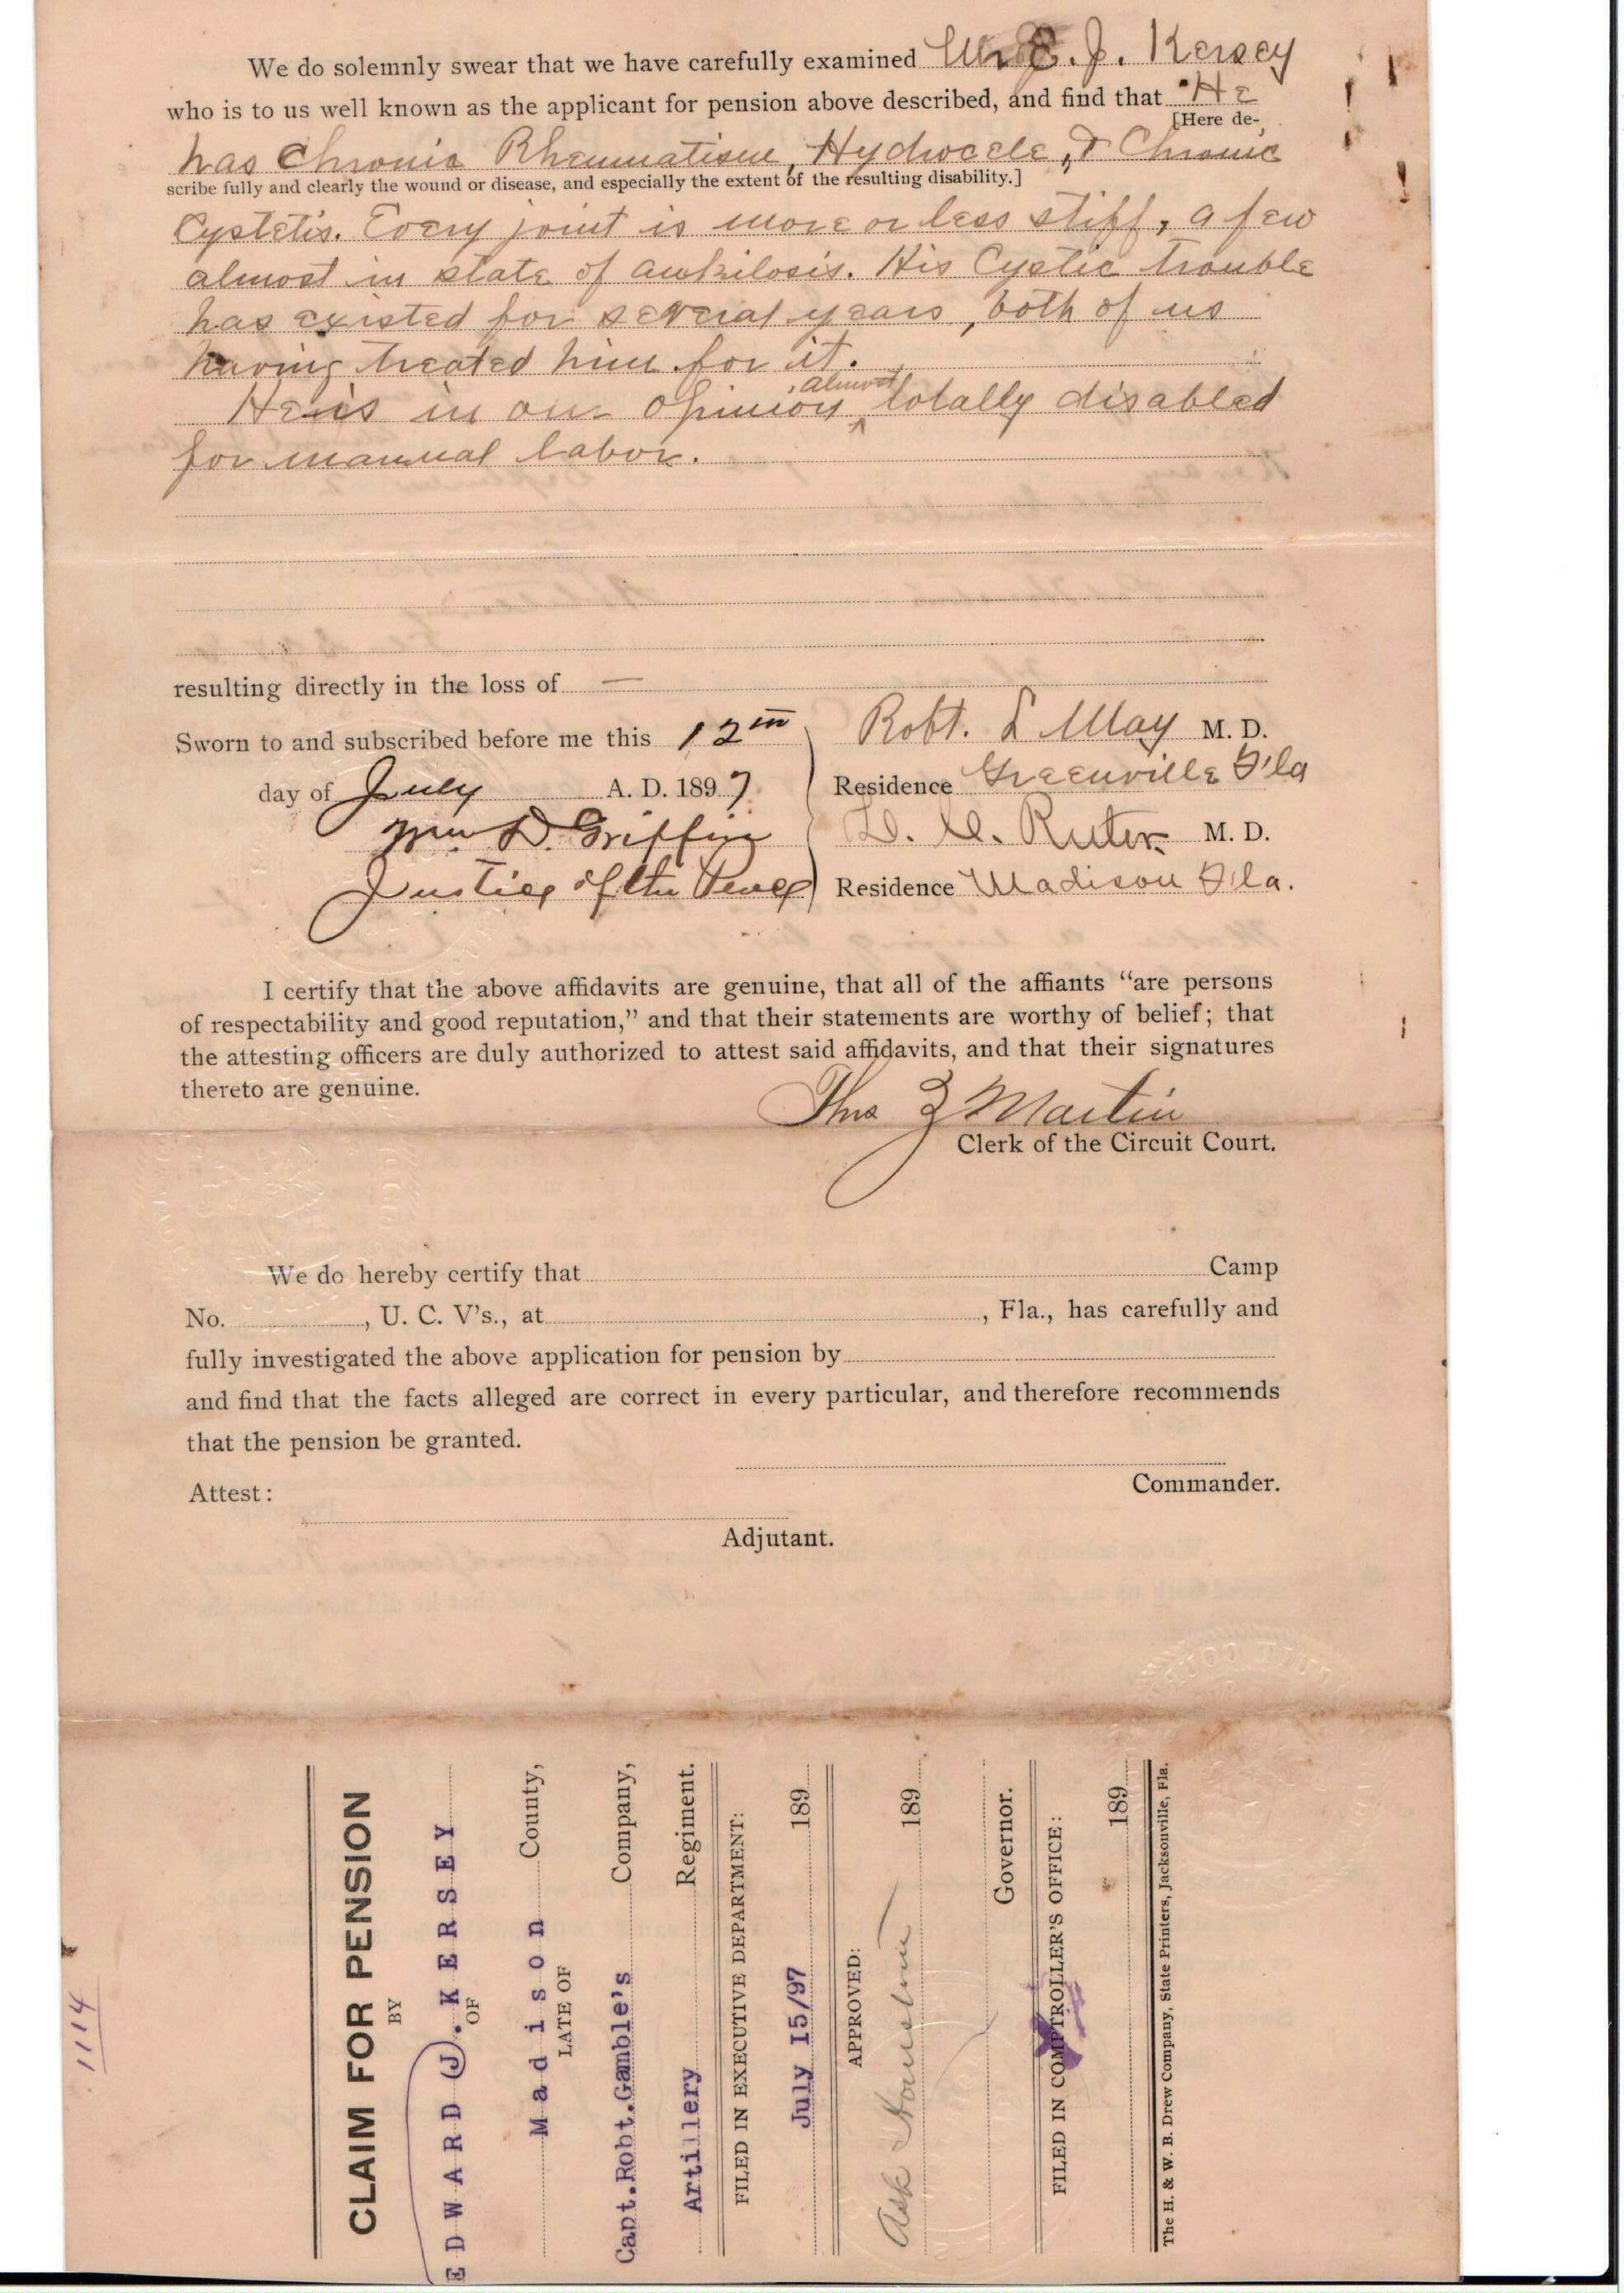 We do solemnly swear that we have carefully examined Mr E. J. Kersey
who is to us well known as the applicant for pension above described, and find that He
[Here de-
has Chronic Rheumatism, Hydrocele, & Chronic
scribe fully and clearly the wound or disease, and especially the extent of the resulting disability.]
Cystetis. Every joint is more or less stiff, a few
almost in state of ankilosis. His Cystic trouble
has existed for several years, both of us
having treated him for it.
almost
He is in our opinion ^ totally disabled
for manual labor.
resulting directly in the loss of —
Sworn to and subscribed before me this 12th Robt. L May M. D.
day of July A. D. 1897 Residence Greenville Fla
Wm D. Griffin M. D.
Justice of the Peace Residence Madison Fla.
I certify that the above affidavits are genuine, that all of the affiants “are persons
of respectability and good reputation,” and that their statements are worthy of belief; that
the attesting officers are duly authorized to attest said affidavits, and that their signatures
thereto are genuine.
Thos Z Martin
Clerk of the Circuit Court.
We do hereby certify that Camp
No. , U. C. V's., at , Fla., has carefully and
fully investigated the above application for pension by
and find that the facts alleged are correct in every particular, and therefore recommends
that the pension be granted.
Commander.
Attest:
Adjutant.
1114
CLAIM FOR PENSION
BY
EDWARD (J). KERSEY
OF
Madison County,
LATE OF
Capt.Robt.Gamble's Company,
Artillery Regiment.
FILED IN EXECUTIVE DEPARTMENT:
July 15/97 189
APPROVED:
Ask 189
Governor.
FILED IN COMPTROLLER'S OFFICE:
189
The H. & W. B. Drew Company, State Printers, Jacksonville, Fla.